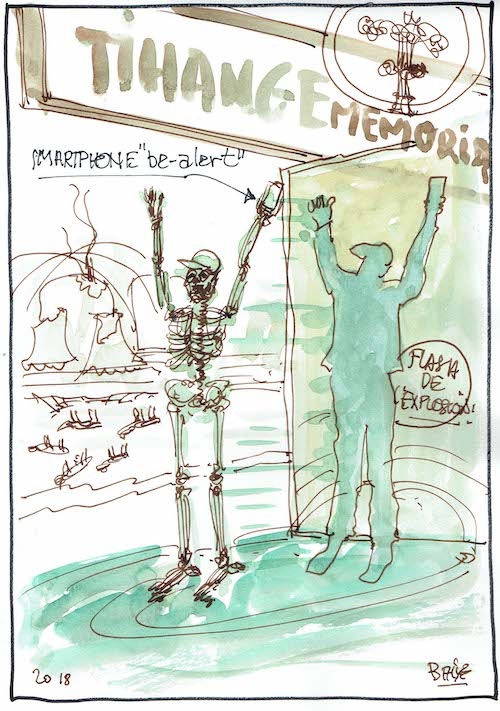 TIHANGE
MEMORIA
SMARTPHONE "be-alert"
FLASH
DE
L'EXPLOSION!
2018